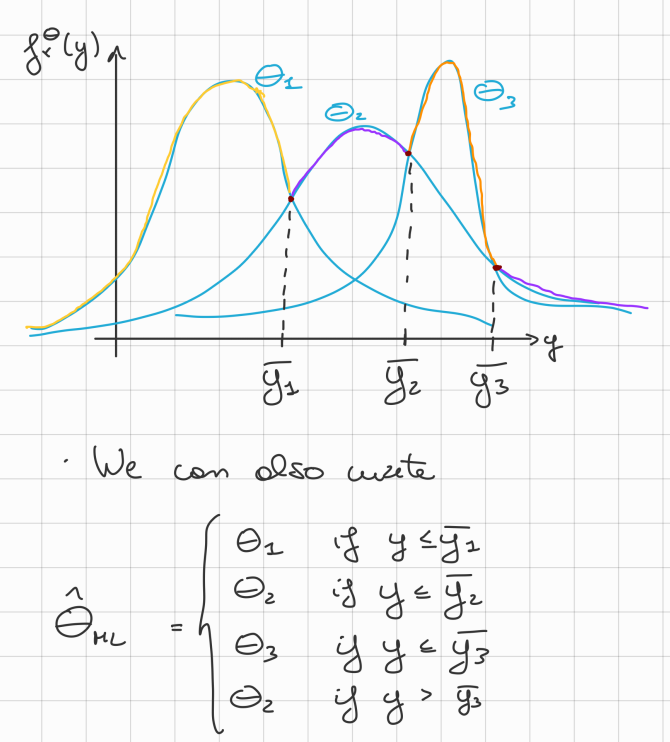 f_x^θ(y)
θ₁
θ₂
θ₃
y
ȳ₁ ȳ₂ ȳ₃
· We can also write
θ̂_ML = { θ₁ if y ≤ ȳ₁
θ₂ if y ≤ ȳ₂
θ₃ if y ≤ ȳ₃
θ₂ if y > ȳ₃